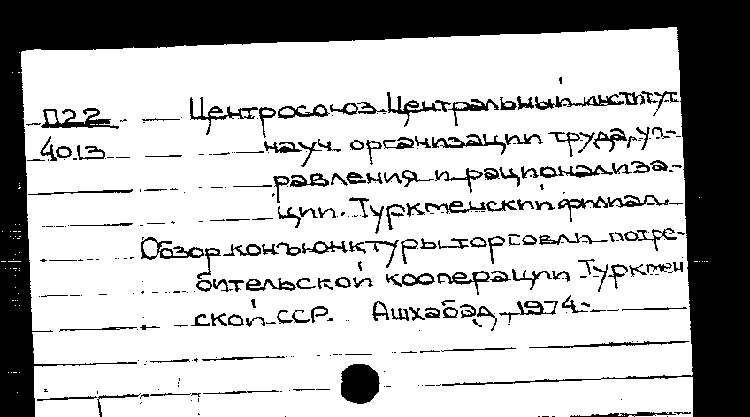 П22 Центросоюз. Центральный институт
4013 науч. организации труда, уп-
равления и рационализа-
ции. Туркменский филиал.
Обзор конъюнктуры торговли потре-
бительской кооперации Туркмен-
ской ССР. Ашхабад, 1974-